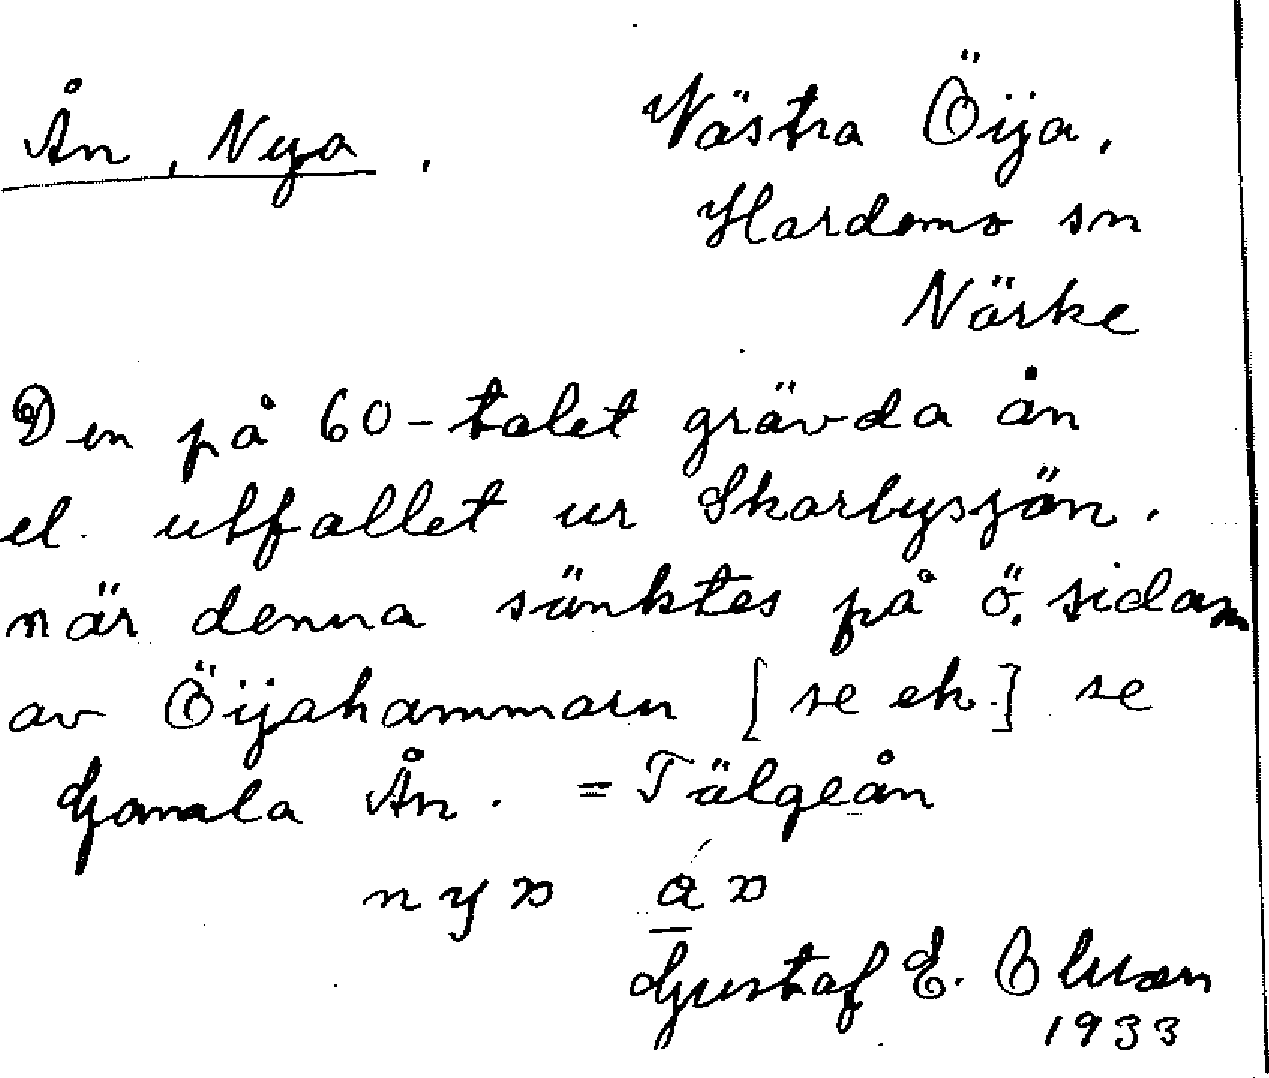 Ån, Nya.
Västra Öija,
Hardemo sn
Närke
Den på 60-talet grävda ån
el. utfallet ur Skarbysjön.
när denna sänktes på ö. sidan
av Öijahammarn [se ek.] se
Gamla Ån. = Tälgeån
Gustaf E.
1933